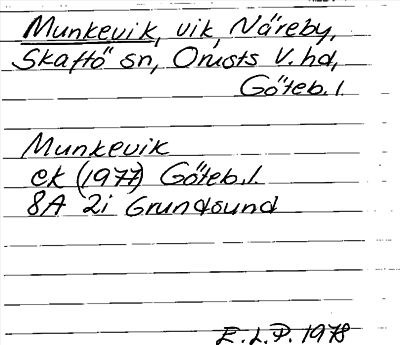 Munkevik, vik, Näreby,
Skaftö sn, Orusts V. hd,
Göteb. l.
Munkevik
ek (1977) Göteb. l.
8A 2i Grundsund
E. L. P. 1978